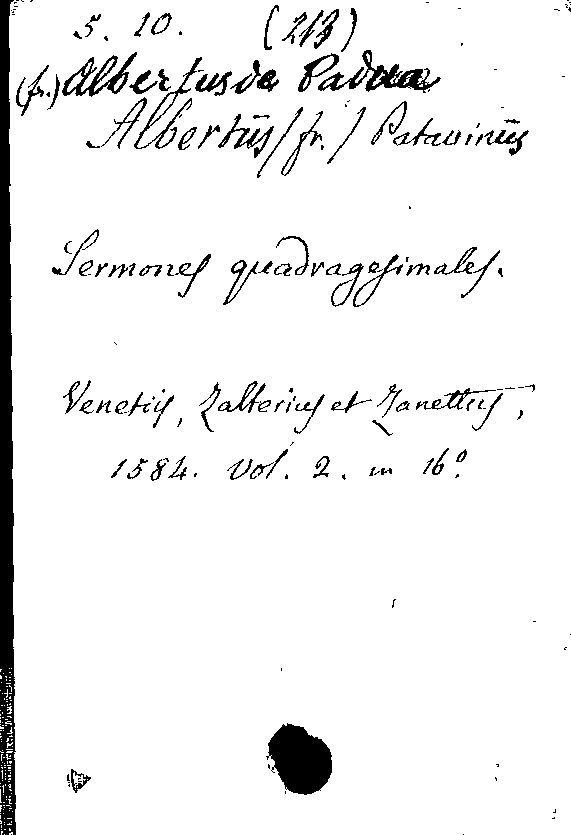 5. 10. (213)
(fr.) Albertus de Padua
Albertus / fr. / Patavinus
Sermones quadragesimales.
Venetiis, Zalterius et Zanettus,
1584. Vol. 2. in 16º